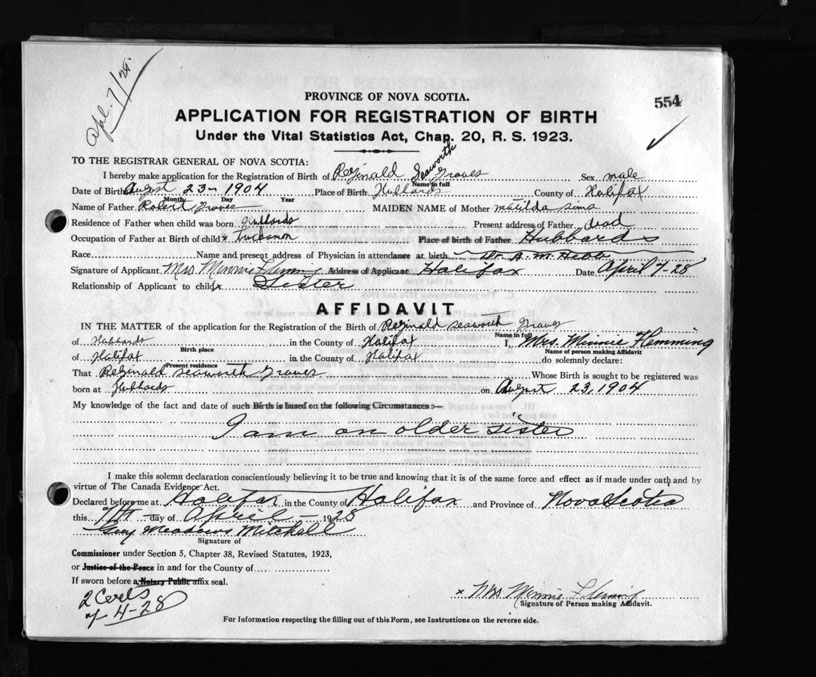 Apl. 7/28.
PROVINCE OF NOVA SCOTIA.
554
APPLICATION FOR REGISTRATION OF BIRTH
Under the Vital Statistics Act, Chap. 20, R. S. 1923.
TO THE REGISTRAR GENERAL OF NOVA SCOTIA:
I hereby make application for the Registration of Birth of Reginald Seaworth Graves Sex male
Name in full
Date of Birth August 23 - 1904 Place of Birth Hubbards County of Halifax
Month Day Year
Name of Father Robert Graves MAIDEN NAME of Mother Matilda Sims
Residence of Father when child was born Hubbards Present address of Father dead
Occupation of Father at Birth of child Place of Birth of Father Hubbards
Race Name and present address of Physician in attendance at birth Dr. A. M. Hebb
Signature of Applicant Mrs Minnie Flemming Address of Applicant Halifax Date April 7-28
Relationship of Applicant to child Sister
AFFIDAVIT
IN THE MATTER of the application for the Registration of the Birth of Reginald Seaworth Graves
Name in full
of Hubbards in the County of Halifax I, Mrs. Minnie Flemming
Birth place Name of person making Affidavit
of Halifax in the County of Halifax do solemnly declare:
Present residence
That Reginald Seaworth Graves Whose Birth is sought to be registered was
born at Hubbards on August 23, 1904
My knowledge of the fact and date of such Birth is based on the following Circumstances:—
I am an older sister
I make this solemn declaration conscientiously believing it to be true and knowing that it is of the same force and effect as if made under oath and by
virtue of The Canada Evidence Act.
Declared before me at Halifax in the County of Halifax and Province of Nova Scotia
this 7th day of April 1928
Guy Meadows Mitchell
Signature of
Commissioner under Section 5, Chapter 38, Revised Statutes, 1923,
or Justice of the Peace in and for the County of
If sworn before a Notary Public affix seal.
2 Certs
7-4-28
x Mrs Minnie Flemming
(Signature of Person making Affidavit.
For Information respecting the filling out of this Form, see Instructions on the reverse side.